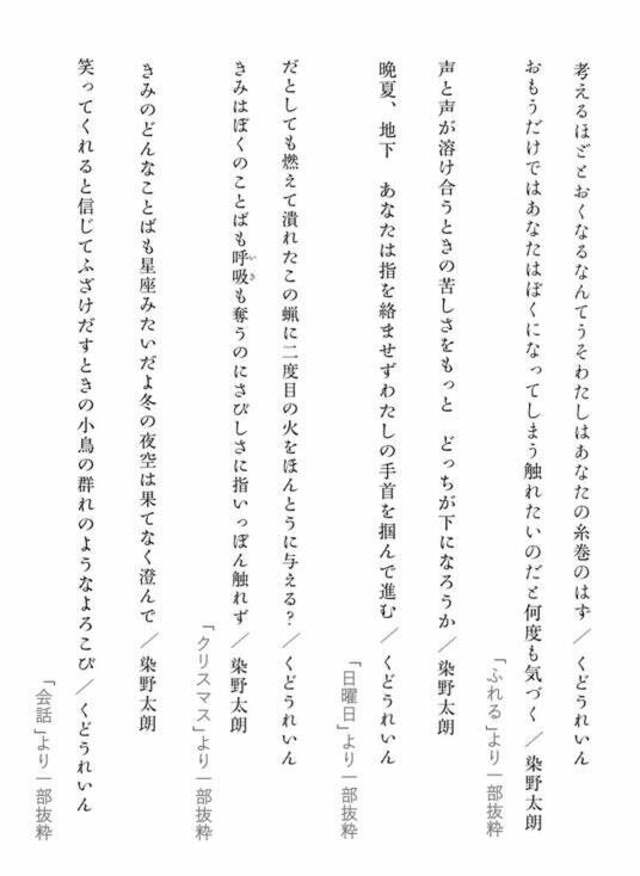 考えるほどとおくなるなんてうそわたしはあなたの糸巻のはず／くどうれいん
おもうだけではあなたはぼくになってしまう触れたいのだと何度も気づく／染野太朗
「ふれる」より一部抜粋
声と声が溶け合うときの苦しさをもっと　どっちが下になろうか／染野太朗
晩夏、地下　あなたは指を絡ませずわたしの手首を掴んで進む／くどうれいん
「日曜日」より一部抜粋
だとしても燃えて潰れたこの蝋に二度目の火をほんとうに与える？／くどうれいん
きみはぼくのことばも呼吸も奪うのにさびしさに指いっぽん触れず／染野太朗
いき
「クリスマス」より一部抜粋
きみのどんなことばも星座みたいだよ冬の夜空は果てなく澄んで／染野太朗
笑ってくれると信じてふざけだすときの小鳥の群れのようなよろこび／くどうれいん
「会話」より一部抜粋